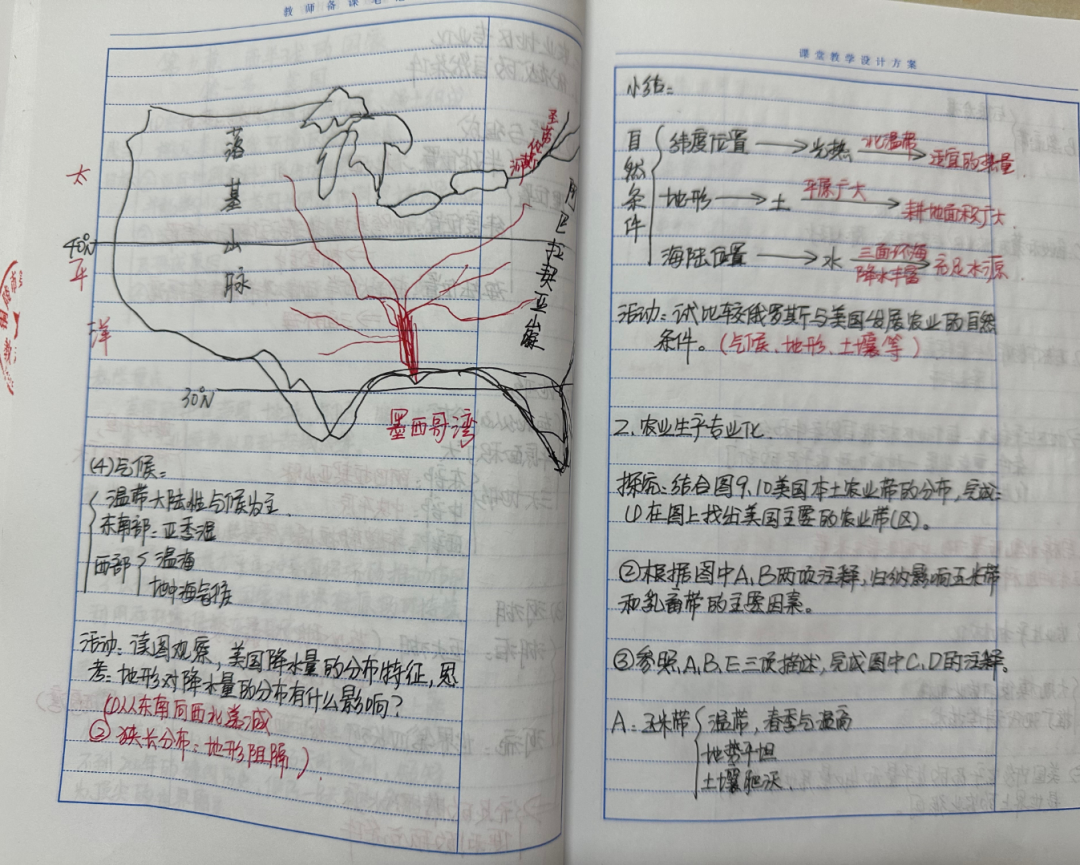 教师备课笔记
落基山脉
太平洋
40°N
30°N
阿巴拉契亚山脉
墨西哥湾
(4)气候：
温带大陆性气候为主.
东南部：亚季湿
西部
温海
地中海气候
活动：读图观察，美国降水量的分布特征，思
考：地形对降水量的分布有什么影响？
(1)从东南向西北递减
② 狭长分布：地形阻隔）.
课堂教学设计方案
小结：
自然条件
纬度位置 → 光热 北温带 → 适宜的热量.
地形 → 土 平原广大 → 耕地面积广大
海陆位置 → 水 三面环海 降水丰富 → 充足水源.
活动：试比较俄罗斯与美国发展农业的自然
条件。（气候、地形、土壤等）
2、农业生产专业化.
探究：结合图9.10美国本土农业带的分布，完成：
(1)在图上找出美国主要的农业带(区)。
②根据图中A、B两项注释，归纳影响玉米带
和乳畜带的主要因素。
③参照A、B、E三项描述，完成图中C、D的注释。
A：玉米带
温带，春季气温高
地势平坦
土壤肥沃.